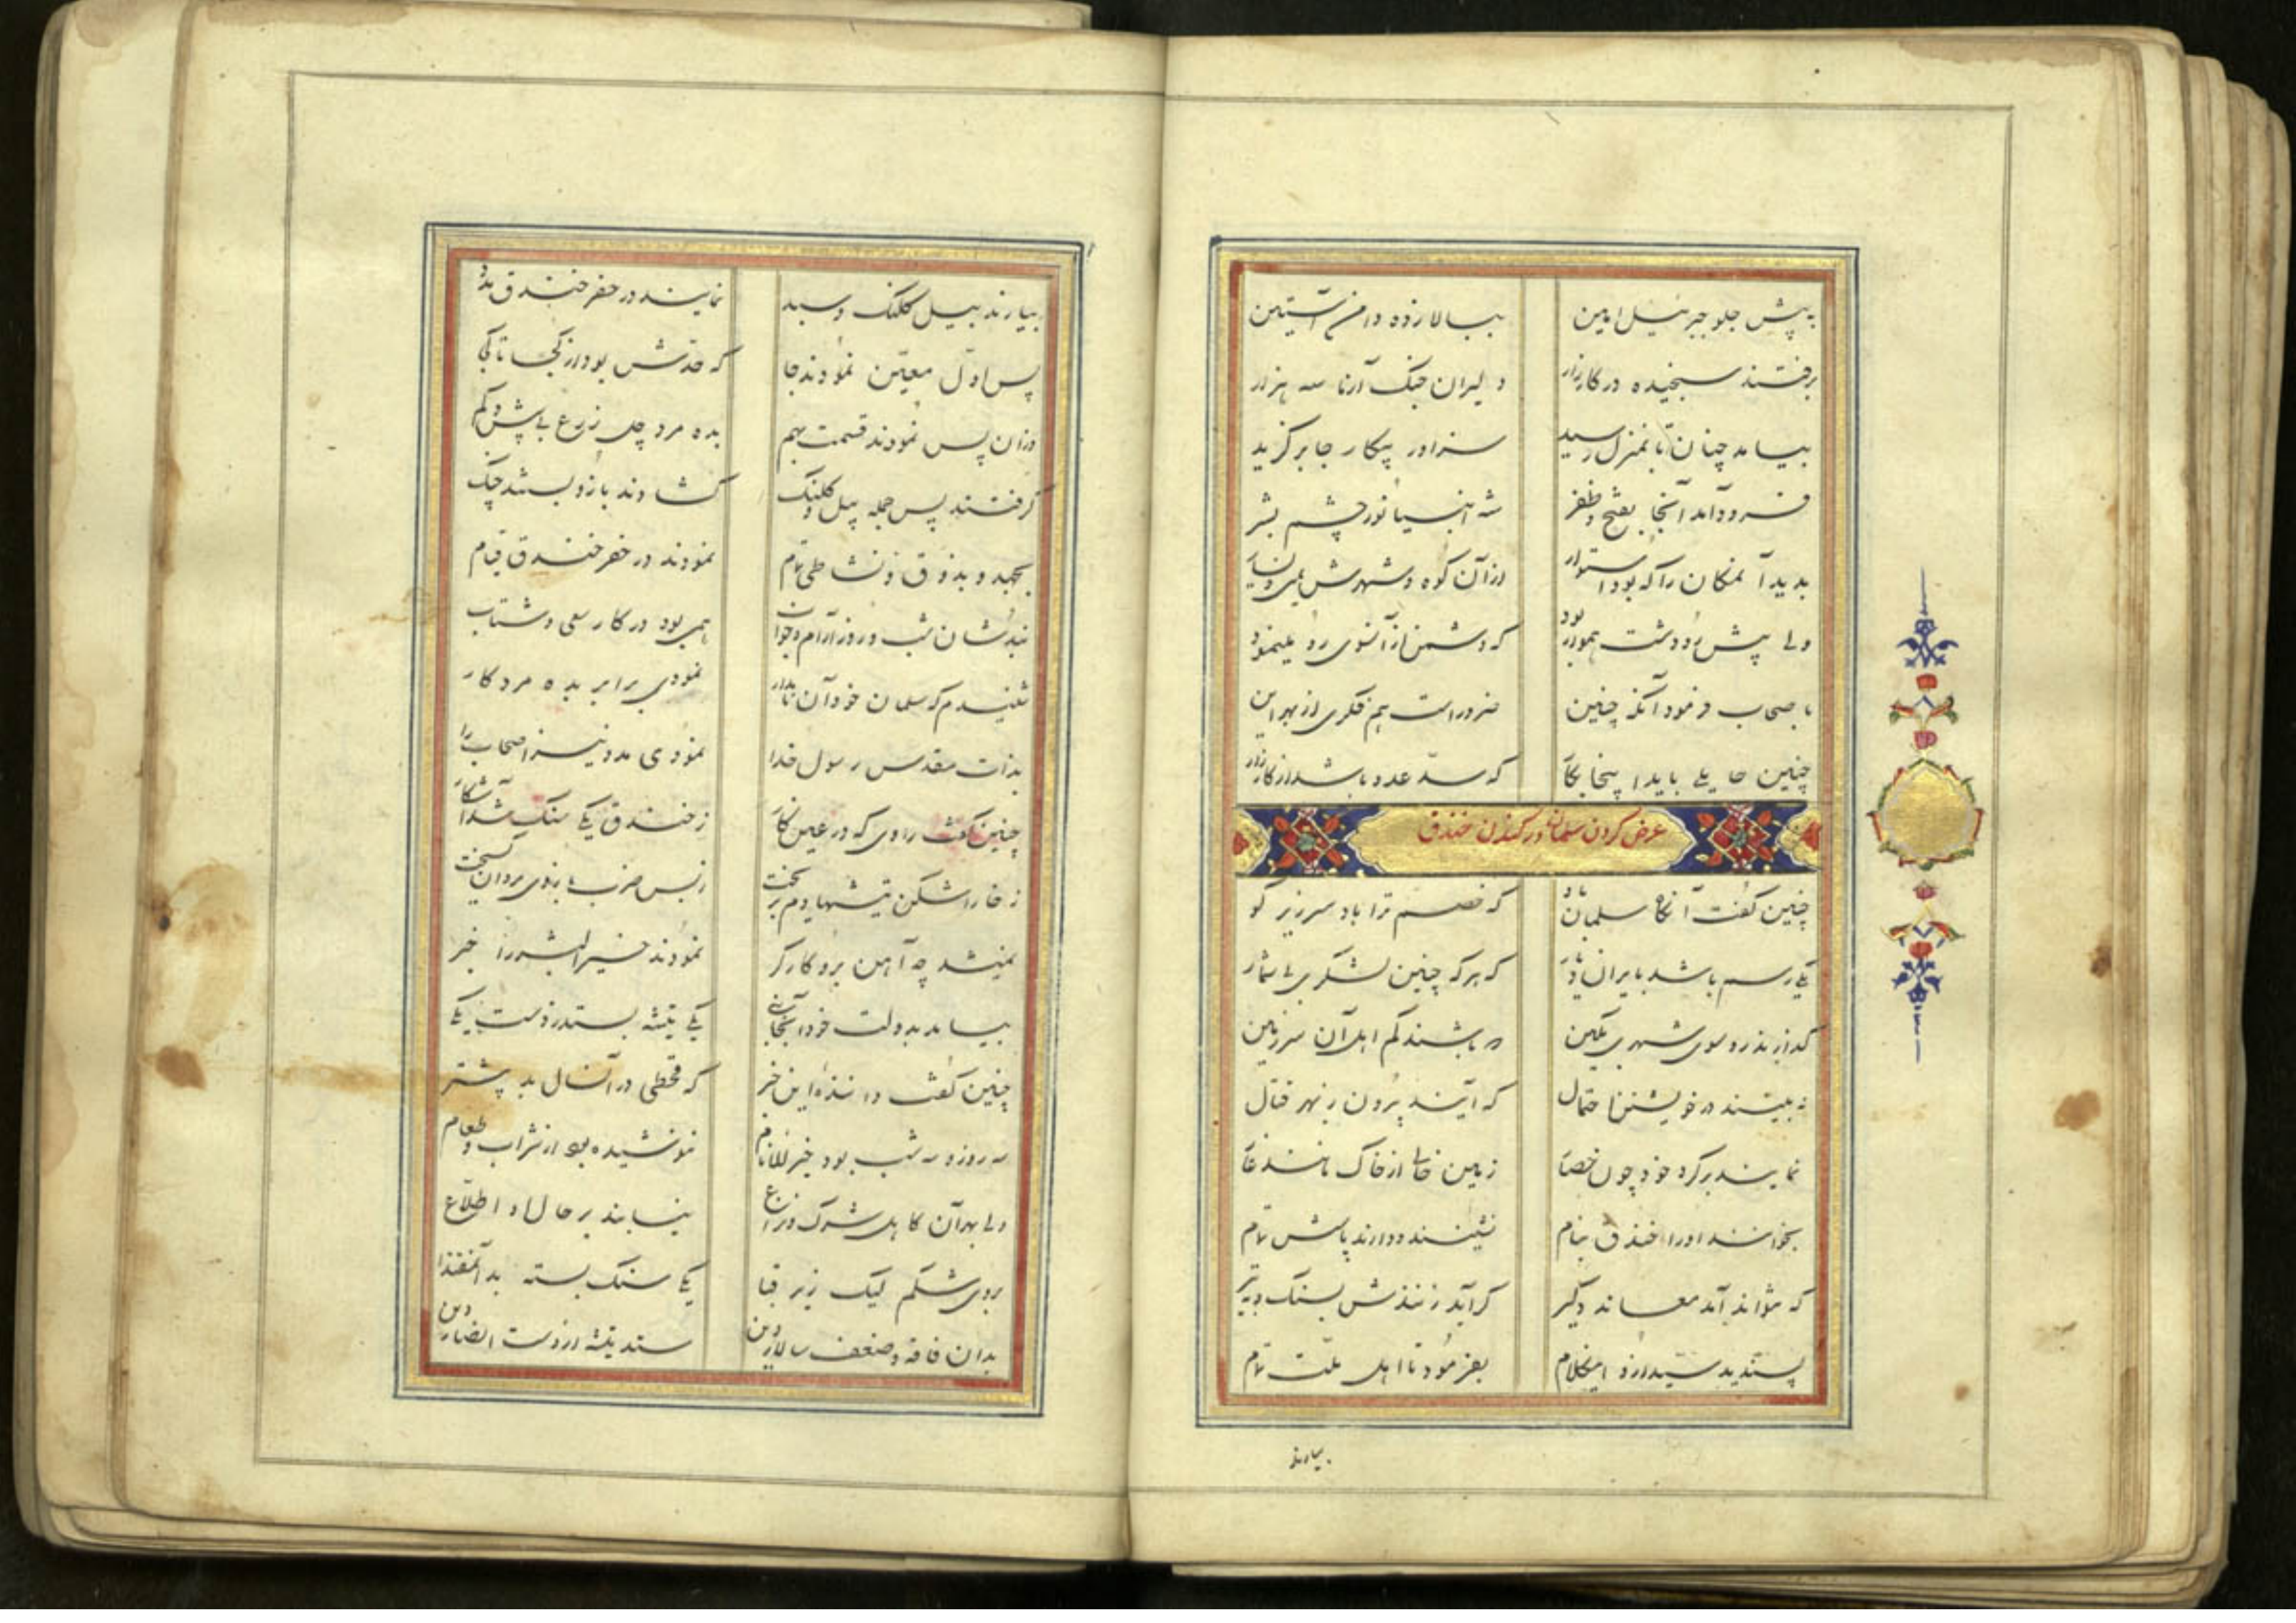 به پیش جلو جبرئیل امین ببالا زده دامن آستین
برفتند سنجیده در کارزار دلیران جنگ آزما سه هزار
بیامد چنان تا بمنزل رسید سزاور پیکار جا برگزید
فرود آمد آنجا بفتح و ظفر شه انبیا نور چشم بشر
بدید آنمکان را که بود استوار از آن کوه و شهرش یمین و یسار
ولی پیش رو دشت هموار بود که دشمن از آنسوی رو مینمود
باصحاب فرمود آنگه چنین ضرور است هم فکری از بهر این
چنین حایلی باید اینجا بکار که سدّ عدو باشد از کارزار
عرض کردن سلمان در کندن خندق
چنین گفت آنگاه سلمان باو که خصم ترا باد سر زیر گو
یکی رسم باشد بایران دیار که هر که چنین لشکری بی شمار
گذارند رو سوی شهری بکین و باشند کم اهل آن سرزمین
نه بینند در خویشتن احتمال که آیند بیرون ز بهر قتال
نمایند بر گرد خود چون حصار زمین خالی از خاک مانند غار
بخوانند او را خندق بنام نشینند و دارند پاسش تمام
که نتواند آمد معاند دگر گر آید زنندش بسنگ و تبر
پسندید سید ازو اینکلام بفرمود تا اهل ملّت تمام
بیارند
بیارند بیل کلنگ و سبد نمایند در حفر خندق مدد
پس اول معیّن نمودند جا که حدّش بود از کجا تا کجا
وزان پس نمودند قسمت بهم بده مرد چل ذرع بی بیش و کم
گرفتند پس جمله بیل و کلنگ گشادند بازو ببستند چنگ
بجهد و بذوق و نشاطی تمام نمودند در حفر خندق قیام
نبدشان شب و روز آرام و خواب همی بود در کار سعی و شتاب
شنیدم که سلمان خود آن نامدار نمودی برابر بده مرد کار
بذات مقدس رسول خدا نمودی مدد نیز اصحاب را
چنین گفت راوی که در عین کار ز خندق یکی سنگ شد آشکار
ز خارا شکن تیشها دم بریخت ز بس ضرب بازوی مردان گسیخت
نمیشد چه آهن برو کارگر نمودند خیر البشر را خبر
بیامد بدولت خود آنجا یکی تیشه بستد ز دست یکی
چنین گفت دانندهٔ این خبر که قحطی در آنسال بد پیشتر
سه روز و سه شب بود خیر الانام ننوشیده بود از شراب و طعام
ولی بهر آن کاهل شرک و نزاع نیابند بر حال او اطلاع
بروی شکم لیک زیر قبا یکی سنگ بسته بد آنمقتدا
بدان فاقه و ضعف سالار دین ستد تیشه از دست انصار دین